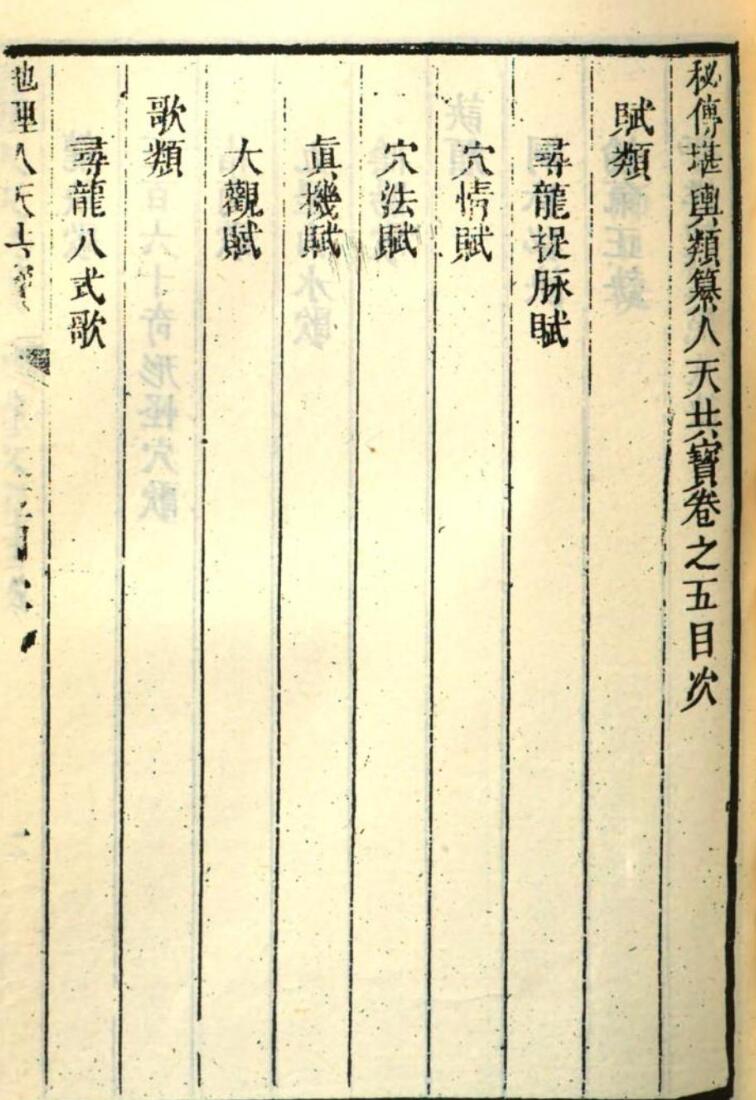 秘傳堪輿類纂人天共寶卷之五目次
賦類
尋龍捉脉賦
穴情賦
穴法賦
眞機賦
大觀賦
歌類
尋龍八式歌
地理人天共寶